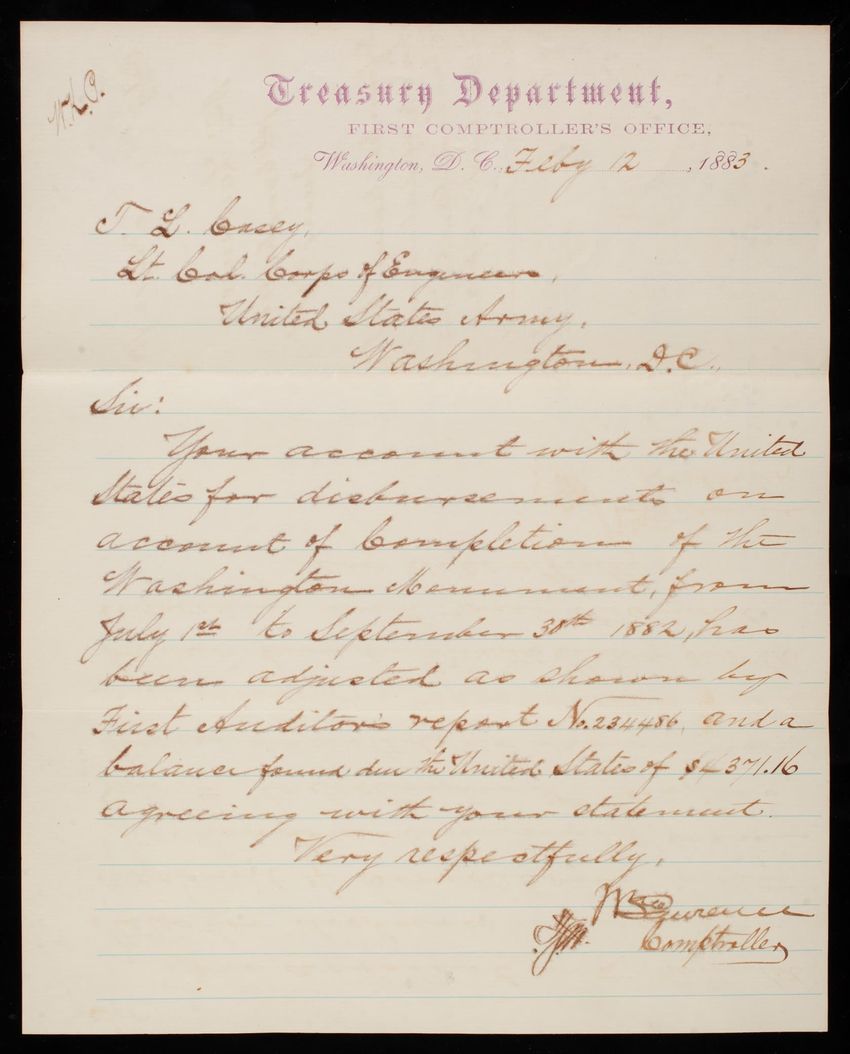 W.L.C.
Treasury Department,
FIRST COMPTROLLER'S OFFICE,
Washington, D. C., Feby 12, 1883.
T. L. Casey,
Lt. Col. Corps of Engineers,
United States Army,
Washington, D.C.,
Sir:
Your account with the United
States for disbursements on
account of Completion of the
Washington Monument, from
July 1st to September 30th 1882, has
been adjusted as shown by
First Auditor's report No. 234486, and a
balance found due the United States of $4371.16
agreeing with your statement.
Very respectfully,
Wm Lawrence
Comptroller